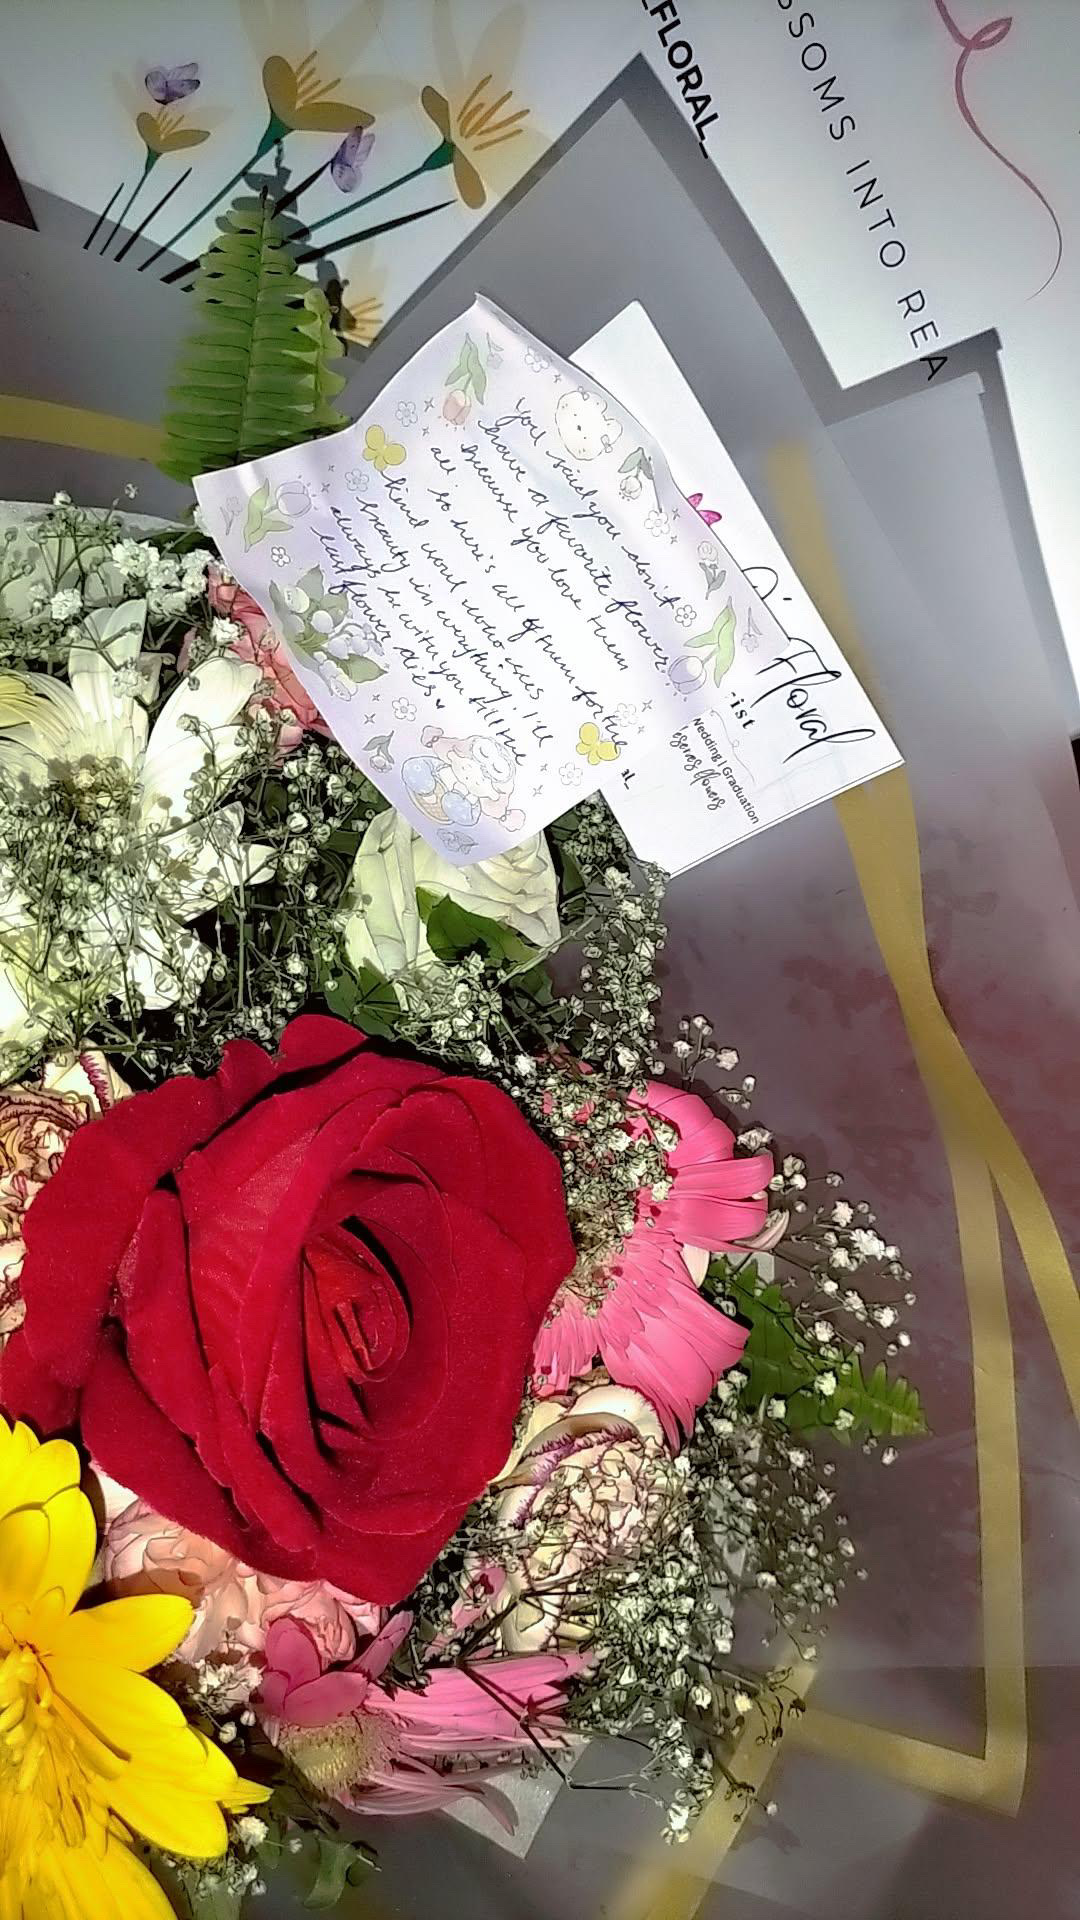 _FLORAL_
SSOMS INTO REA
you said you don't
have a favorite flower
because you love them
all so here's all of them for the
kind soul who sees
beauty in everything, I'll
always be with you till the
last flower dies ♥
Floral
-ist
Wedding | Graduation